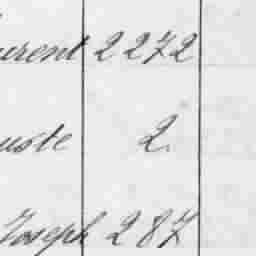 urent 2272
uste 2.
Joseph 287